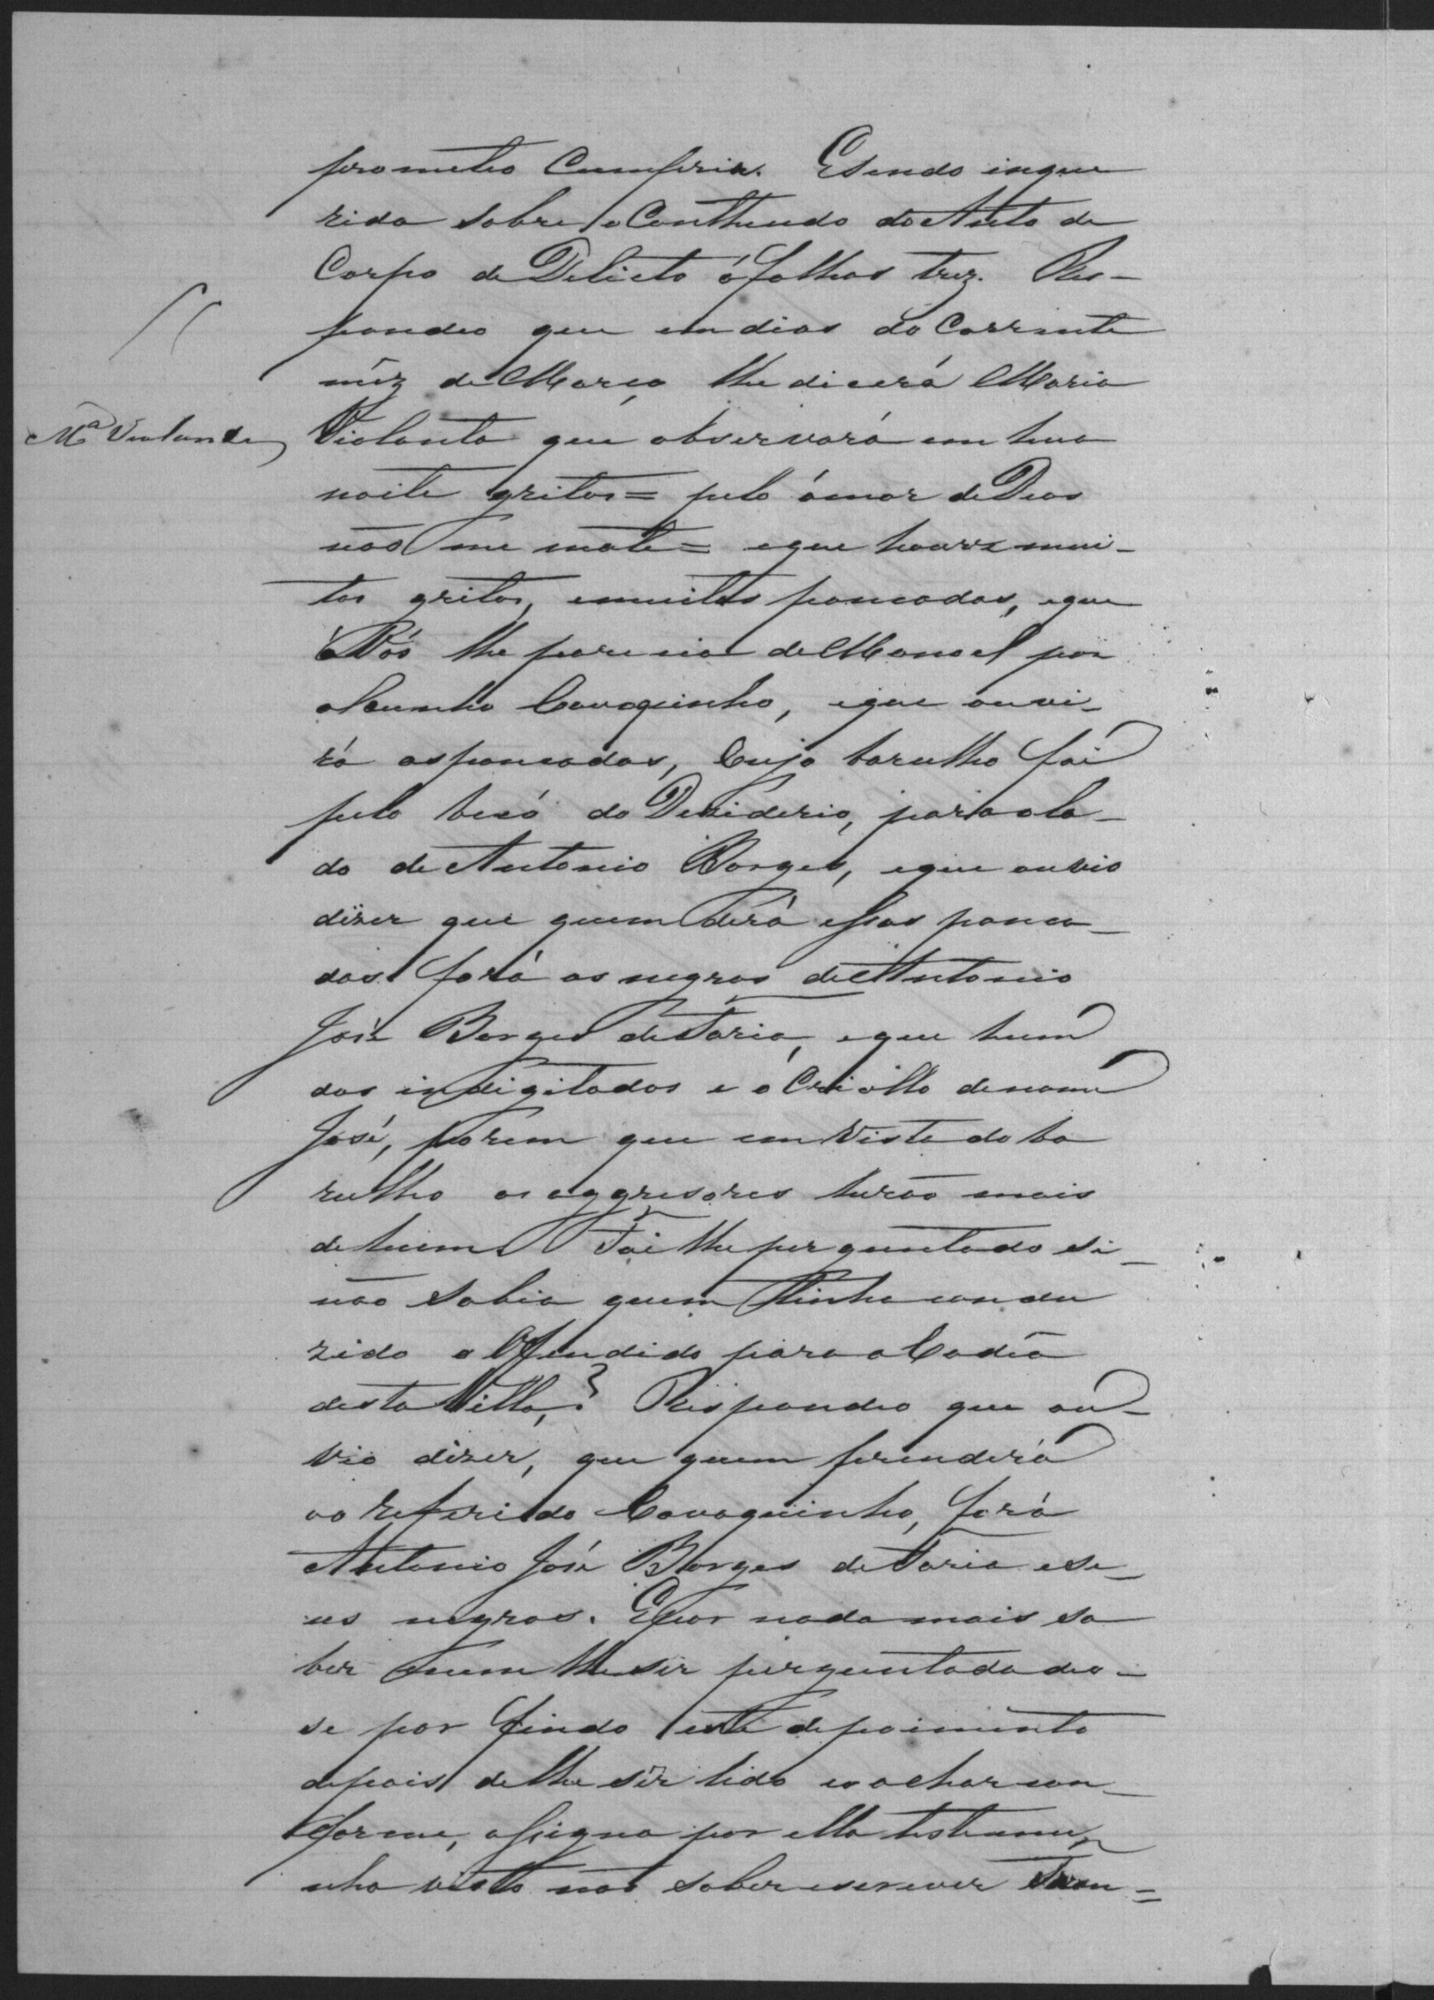 prometeo Cumprir. Esendo inque
rida sobre o Contheudo do Auto de
Corpo de Delicto ó folhas trez. Res-
pondeo que em dias do Corrente
mêz de Março lhe dicerá Maria
Mª Violante Violanta que observará em hua
noite gritos = pelo ámor de Deos
não me mate = eque houve mui-
tos gritos, emuitas pancadas, eque
á Vós lhe parecia de Manoel por
alcunho Cavaquinho, eque ouvi-
rá aspancadas, Cujo barulho foi
pelo becó do Desiderio, para o la-
do de Antonio Borges, eque ouvio
dizer que quem derá essas panca-
das forá os negros de Antonio
José Borges de Faria, eque hum
dos indigitados e o Criollo denome
José, porem que em Vista do ba
rulho os aggresores herão mais
de hum. Foi lhe perguntado si
não sabia quem tinha condu
zido o Offendido para a Cadêa
desta Villa,? Respondeo que ou-
vio dizer, que quem prenderá
ao referido Cavaquinho, forá
Antonio José Borges de Faria ese-
us negros. Epor nada mais sa
ber nem lhe sêr perguntado deo-
se por findo este depoimento
depois de lhe sêr lido e o achar con-
forme, assigna por ella testemu-
nha visto não saber escrever Fran=